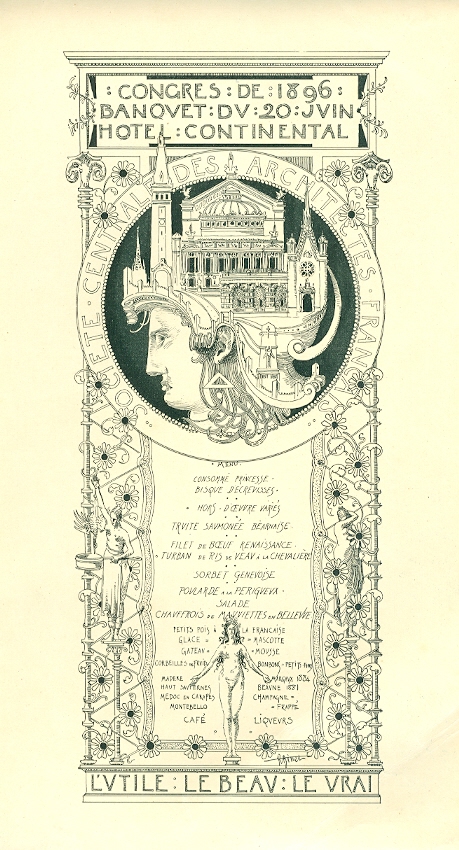 : CONGRES : DE : 1896 :
BANQVET : DV : 20 : JVIN
HOTEL : CONTINENTAL
SOCIETE · CENTRALE · DES · ARCHITECTES · FRANÇAIS
· MENU ·
CONSOMMÉ PRINCESSE ·
BISQUE D'ECREVISSES ·
· HORS · D'ŒUVRE VARIÉS
TRVITE SAVMONÉE BEARNAISE ·
FILET DE BŒUF RENAISSANCE ·
· TURBAN DE RIS DE VEAV À LA CHEVALIERE
SORBET GENEVOISE
POULARDE A LA PERIGVEVX ·
SALADE
CHAVFFROIS DE MAUVIETTES EN BELLEVVE
PETITS POIS À LA FRANCAISE
GLACE = MASCOTTE
GATEAV = MOUSSE
CORBEILLES DE FRUITS BONBONS = PETITS FOURS
MADERE MARGAUX 1884
HAUT SAUTERNES BEAUNE 1881
MEDOC EN CARAFES CHAMPAGNE =
MONTEBELLO = FRAPPÉ
CAFÉ LIQVEVRS
L'VTILE : LE BEAV : LE VRAI